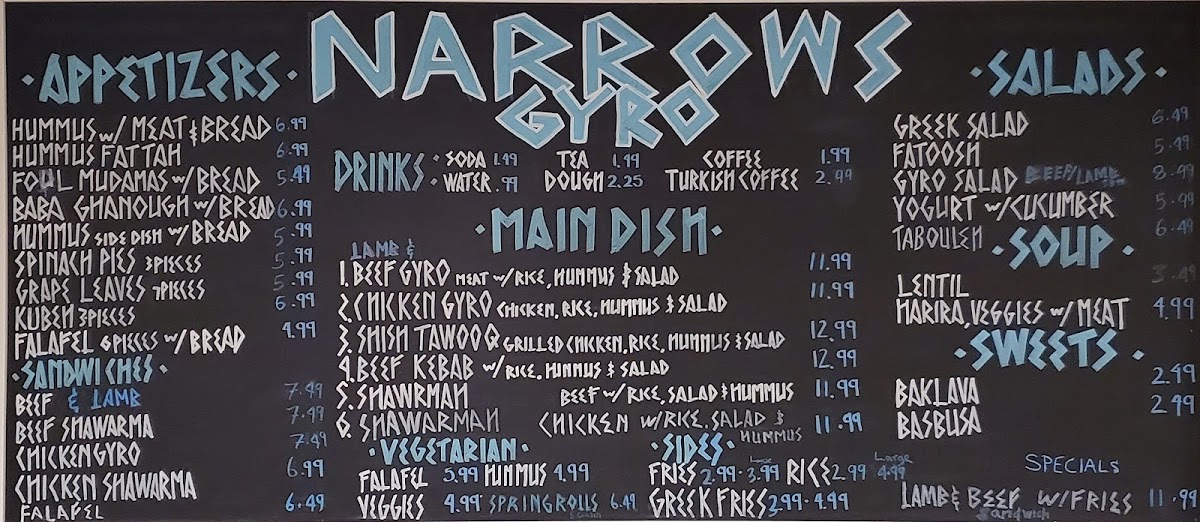 NARROWS
GYRO
·APPETIZERS·
HUMMUS w/ MEAT & BREAD 6.99
HUMMUS FATTAH 6.99
FOUL MUDAMAS w/ BREAD 5.49
BABA GHANOUGH w/ BREAD 6.99
HUMMUS SIDE DISH w/ BREAD 5.99
SPINACH PIES 3 PIECES 5.99
GRAPE LEAVES 7 PIECES 5.99
KUBEH 3 PIECES 6.99
FALAFEL 6 PIECES w/ BREAD 4.99
·SANDWICHES·
BEEF & LAMB 7.49
BEEF SHAWARMA 7.49
CHICKEN GYRO 7.49
CHICKEN SHAWARMA 6.99
FALAFEL 6.49
DRINKS · SODA 1.99 TEA 1.99 COFFEE 1.99
· WATER .99 DOUGH 2.25 TURKISH COFFEE 2.99
·MAIN DISH·
LAMB &
1. BEEF GYRO MEAT w/ RICE, HUMMUS & SALAD 11.99
2. CHICKEN GYRO CHICKEN, RICE, HUMMUS & SALAD 11.99
3. SHISH TAWOOQ GRILLED CHICKEN, RICE, HUMMUS & SALAD 12.99
4. BEEF KEBAB w/ RICE, HUMMUS & SALAD 12.99
5. SHAWRMAH BEEF w/ RICE, SALAD & HUMMUS 11.99
6. SHAWARMAH CHICKEN W/RICE, SALAD & 11.99
HUMMUS
·VEGETARIAN·
FALAFEL 5.99 HUMMUS 4.99
VEGGIES 4.99 SPRING ROLLS 6.49
·SIDES·
Large
FRIES 2.99 - 3.99 RICE 2.99 4.99
GREEK FRIES 2.99 - 4.99
·SALADS·
GREEK SALAD 6.49
FATOOSH 5.49
GYRO SALAD BEEF/LAMB 8.49
YOGURT w/CUCUMBER 5.99
TABOULEH 6.49
·SOUP·
LENTIL 3.49
HARIRA, VEGGIES w/ MEAT 4.99
·SWEETS·
BAKLAVA 2.49
BASBUSA 2.49
SPECIALS
LAMB & BEEF W/FRIES 11.99
Sandwich